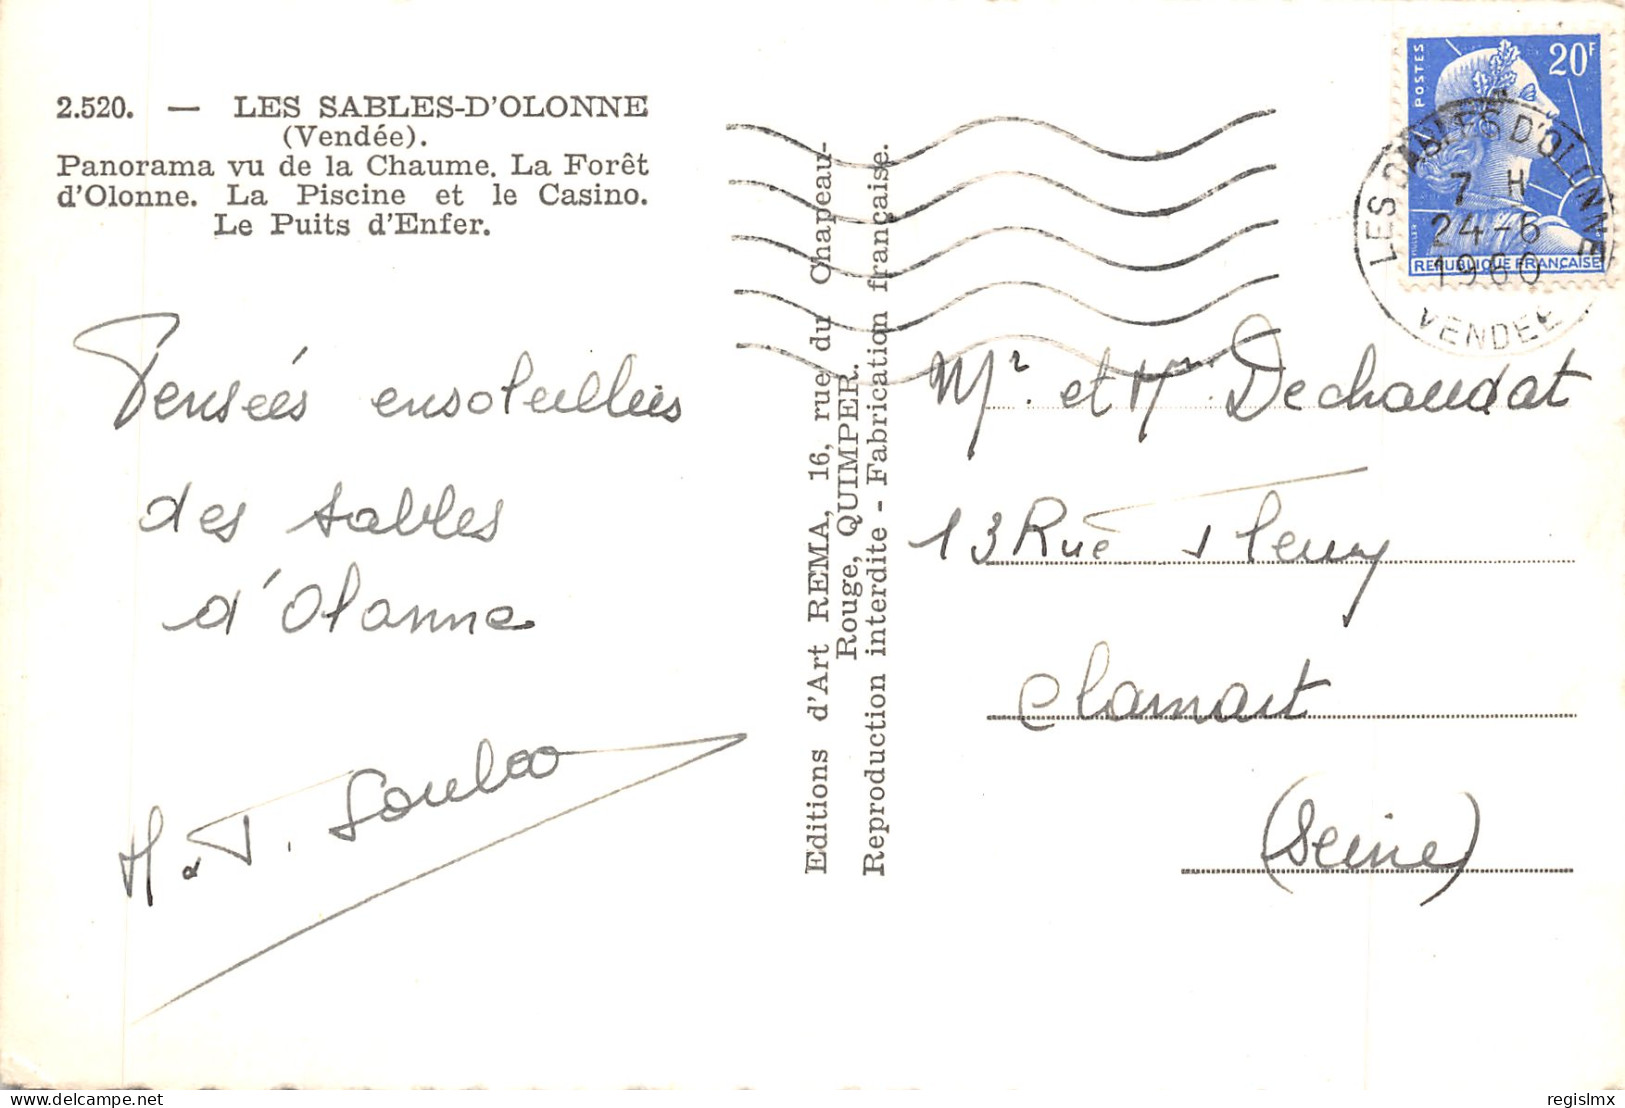 2.520. — LES SABLES-D'OLONNE
(Vendée).
Panorama vu de la Chaume. La Forêt
d'Olonne. La Piscine et le Casino.
Le Puits d'Enfer.
Pensées ensoleillées
des Sables
d'Olonne
Editions d'Art REMA, 16, rue du Chapeau-
Rouge, QUIMPER.
Reproduction interdite - Fabrication française.
POSTES
20F
MULLER
REPUBLIQUE FRANÇAISE
LES SABLES D'OLONNE
7 H
24-6
1960
VENDEE
Mr et Mme Dechaudat
13 Rue Fleury
Clamart
(Seine)
delcampe.net
regislmx